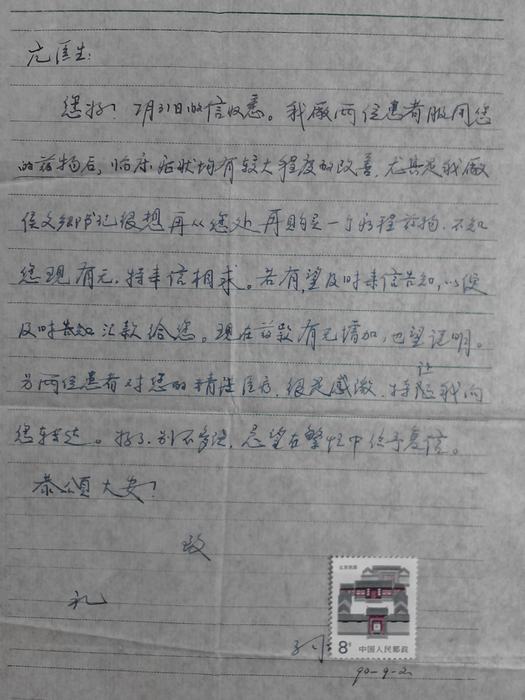 尤医生:
您好!7月31日的信收悉。我厂两位患者服用您
的药物后,临床症状均有较大程度的改善,尤其是我厂
任文 书记很想再从您处再购买一个疗程药物,不知
您现有无,特来信相求。若有,望及时来信告知,以便
及时告知汇款给您。现在药款有无增加,也望说明。
另两位患者对您的精湛医疗,很是感激,特让我向
您转达。好了,别不多谈,忌望在繁忙中给予复信。
恭颂大安!
致
礼
北京民居
8分 中国人民邮政
90-9-2